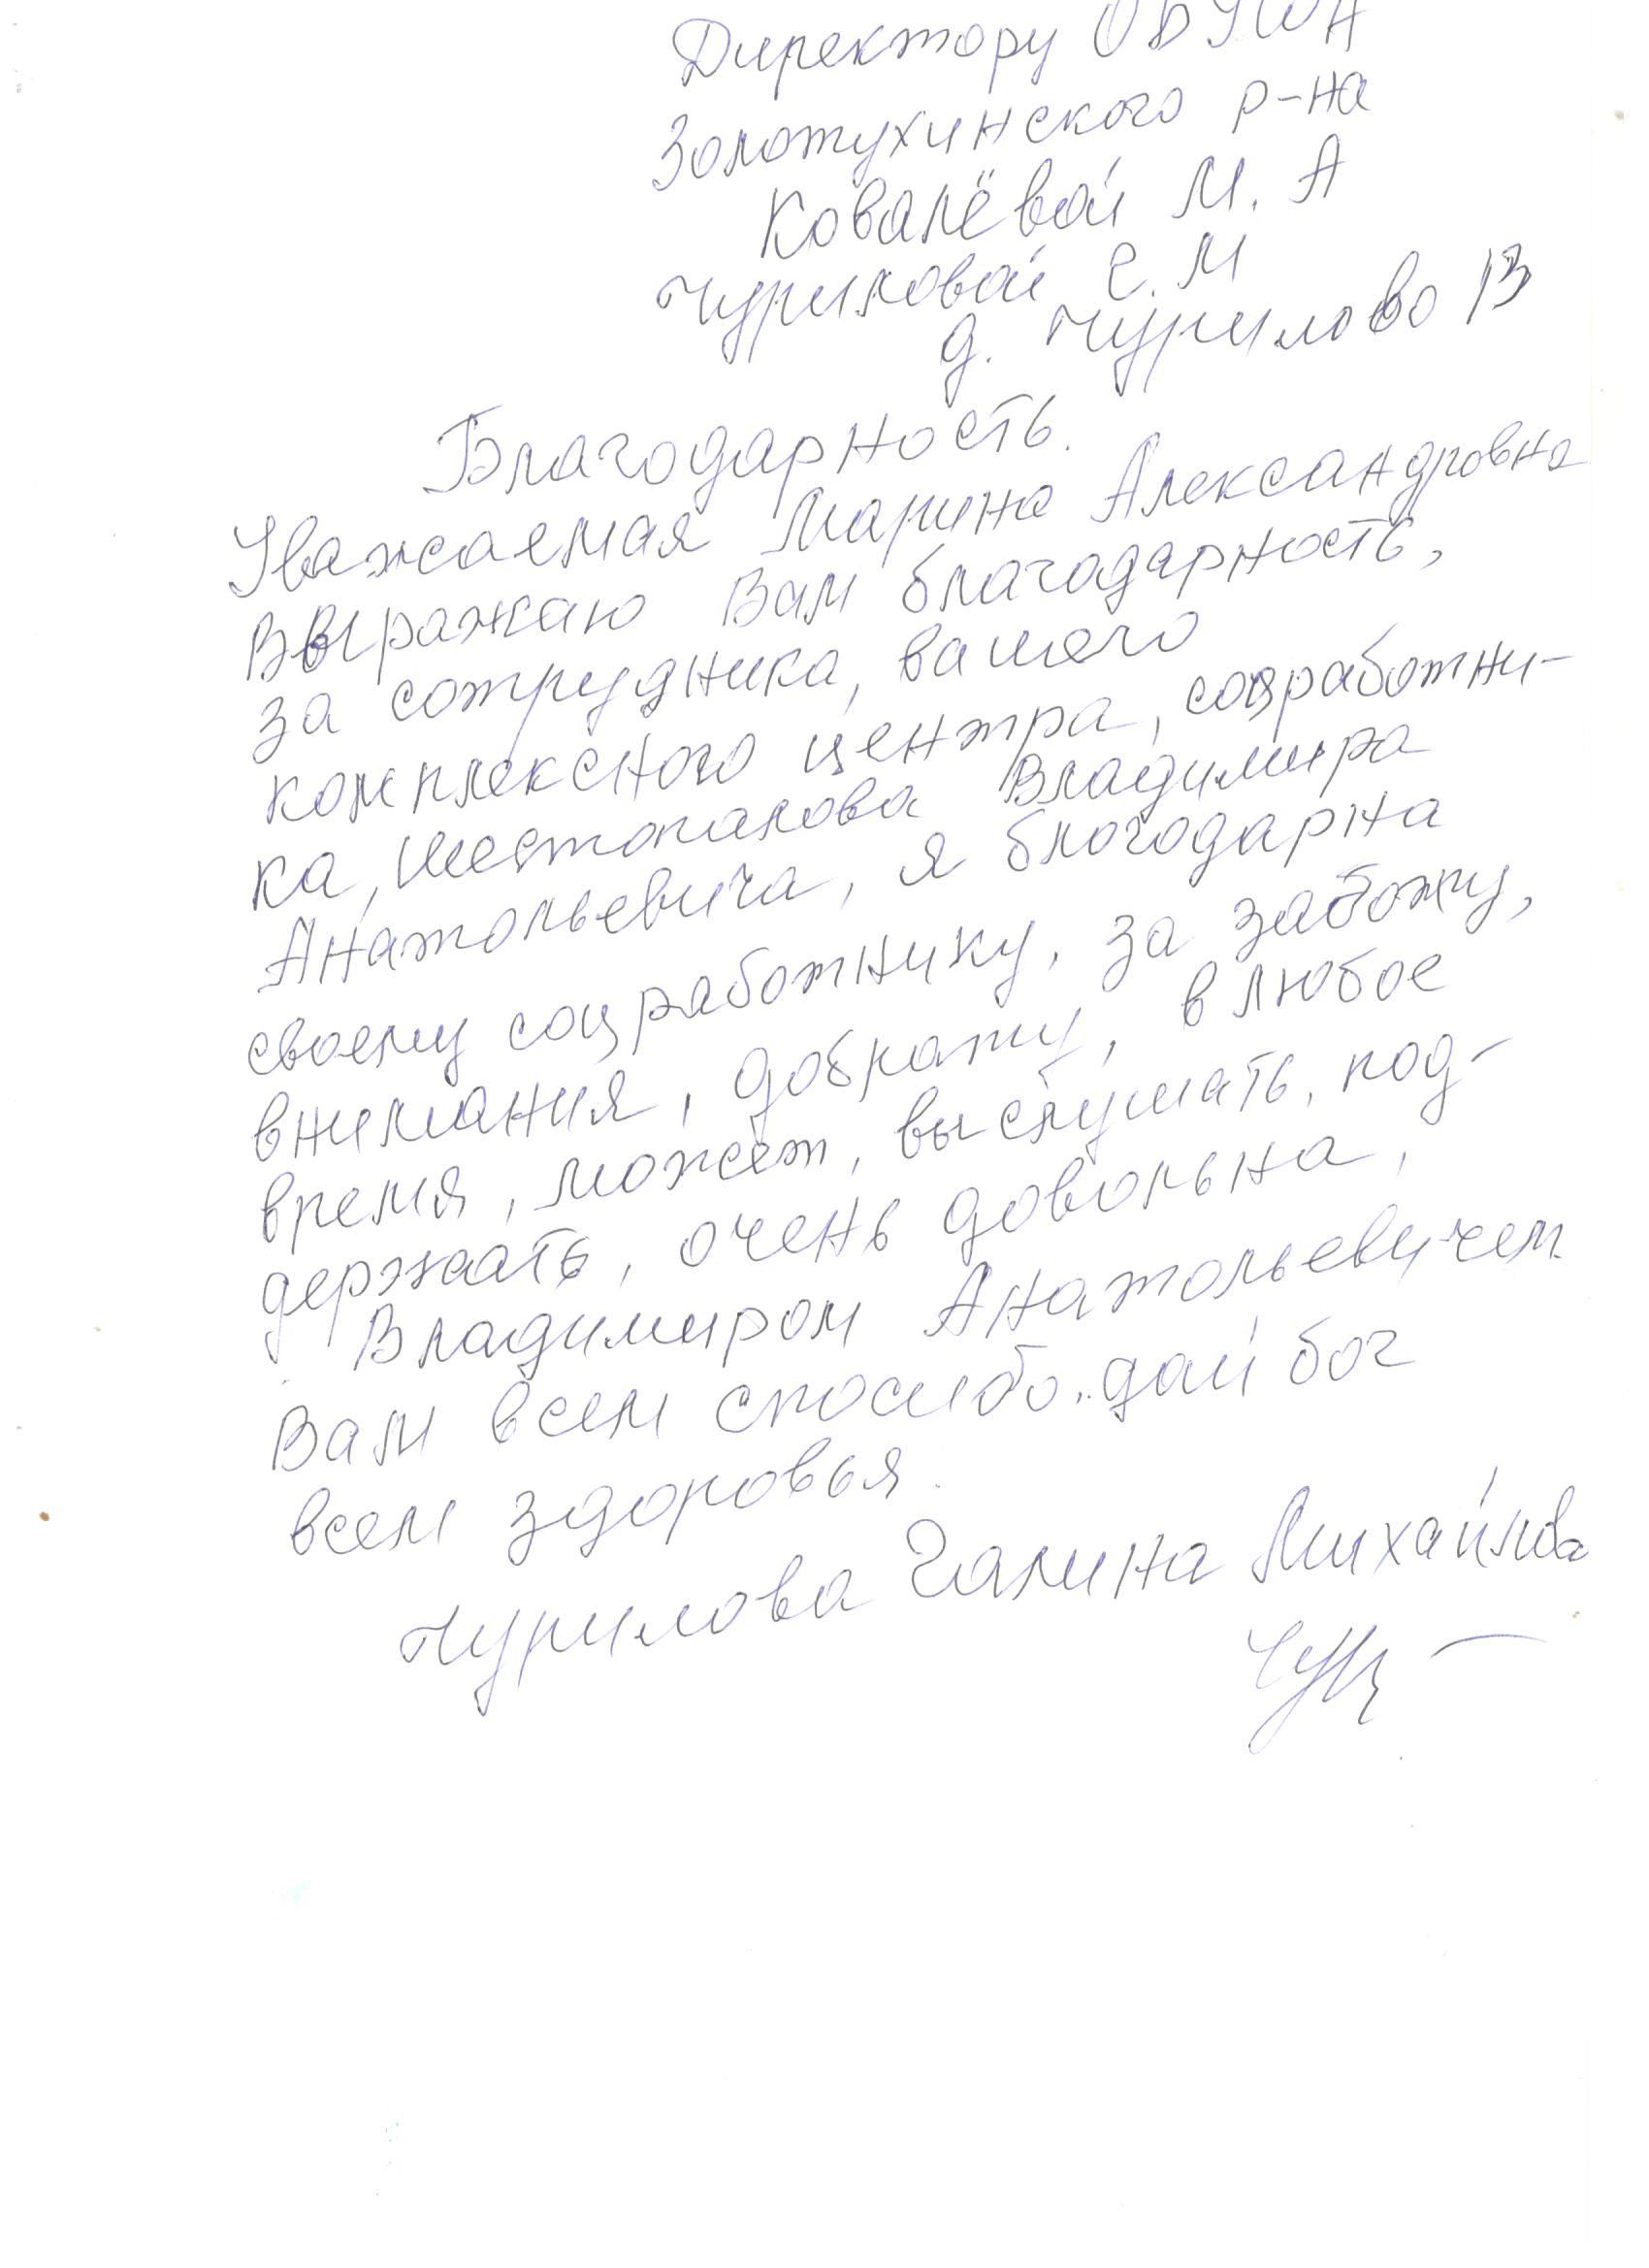 Директору
Золотухинского р-на
Ковалёвой М. А
Чуриловой Г. М
д. Чурилово 13
Благодарность.
Уважаемая Марина Александровна
Выражаю Вам благодарность,
за сотрудника, вашего
комплексного центра, соцработни-
ка, Шестопалова Владимира
Анатольевича, я благодарна
своему соцработнику, за заботу,
внимания, доброту, в любое
время, может, выслушать, под-
держать, очень довольна,
Владимиром Анатольевичем
Вам всем спасибо. дай бог
всем здоровья.
Чурилова Галина Михайлова